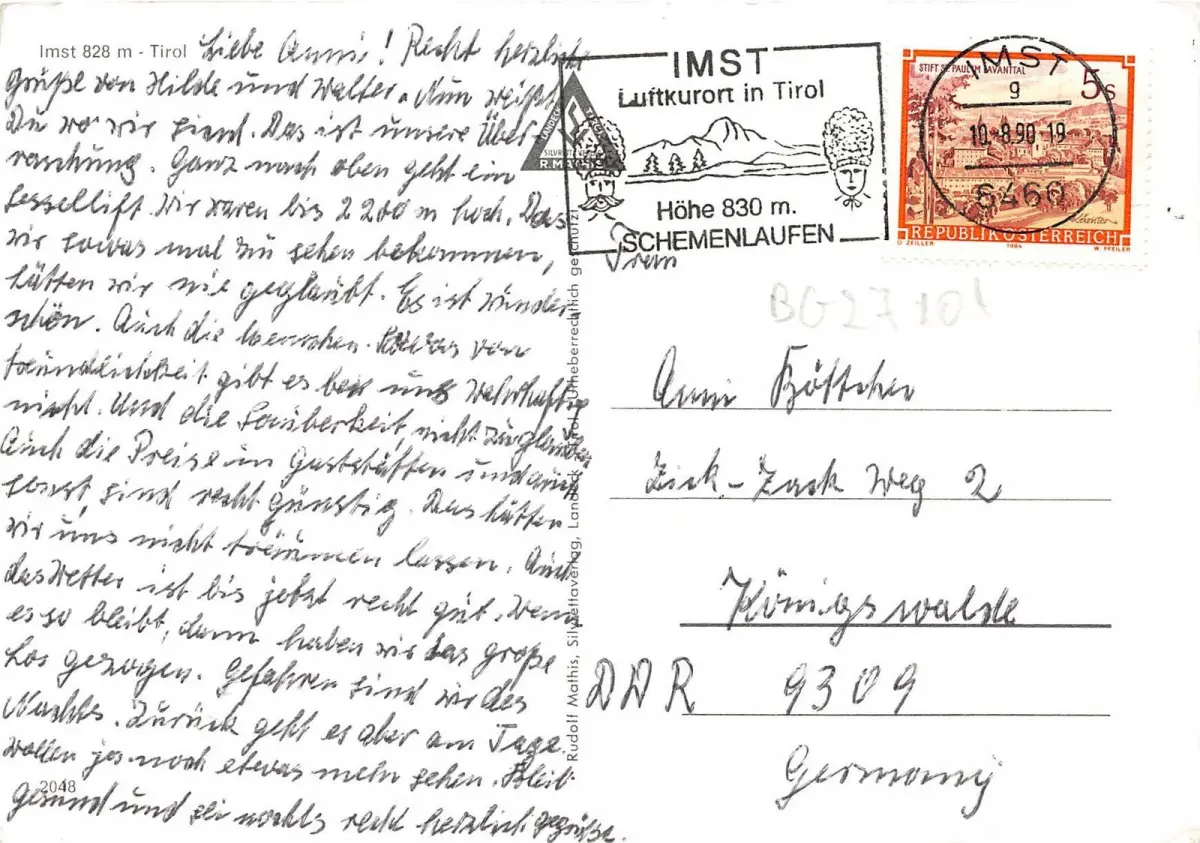 Imst 828 m - Tirol
Liebe Anni! Recht herzliche
Grüße von Hilde und Walter. Nun weißt
Du wo wir sind. Das ist unsere Über-
raschung. Ganz nach oben geht ein
Sessellift. Wir waren bis 2200 m hoch. Das
wir sowas mal zu sehen bekommen,
hätten wir nie geglaubt. Es ist wunder
schön. Auch die Menschen. Etwas von
Freundlichkeit gibt es bei uns wahrhaftig
nicht. Und die Sauberkeit, nicht zu glauben
Auch die Preise in Gaststätten und auch
sonst, sind recht günstig. Das hätten
wir uns nicht träumen lassen. Auch
das Wetter ist bis jetzt recht gut. Wenn
es so bleibt, dann haben wir das große
Los gezogen. Gefahren sind wir des
Nachts. Zurück geht es aber am Tage.
Wollen ja noch etwas mehr sehen. Bleib
2048
Gesund und sei nochts recht herzlich gegrüßt.
Rudolf Mathis, Silvrettaverlag, Landeck Tirol, Urheberrechtlich geschützt
LANDECK
SILVRETTA
R. MATHIS
IMST
Luftkurort in Tirol
Höhe 830 m.
SCHEMENLAUFEN
STIFT ST. PAUL IM LAVANTTAL
5 S
REPUBLIK ÖSTERREICH
O. ZEILLER 1984 W. PFEILER
IMST
g
10.-8.90-19
6460
Frau
BG2710!
Anni Böttcher
Zick-Zack Weg 2
Königswalde
DDR 9309
Germany